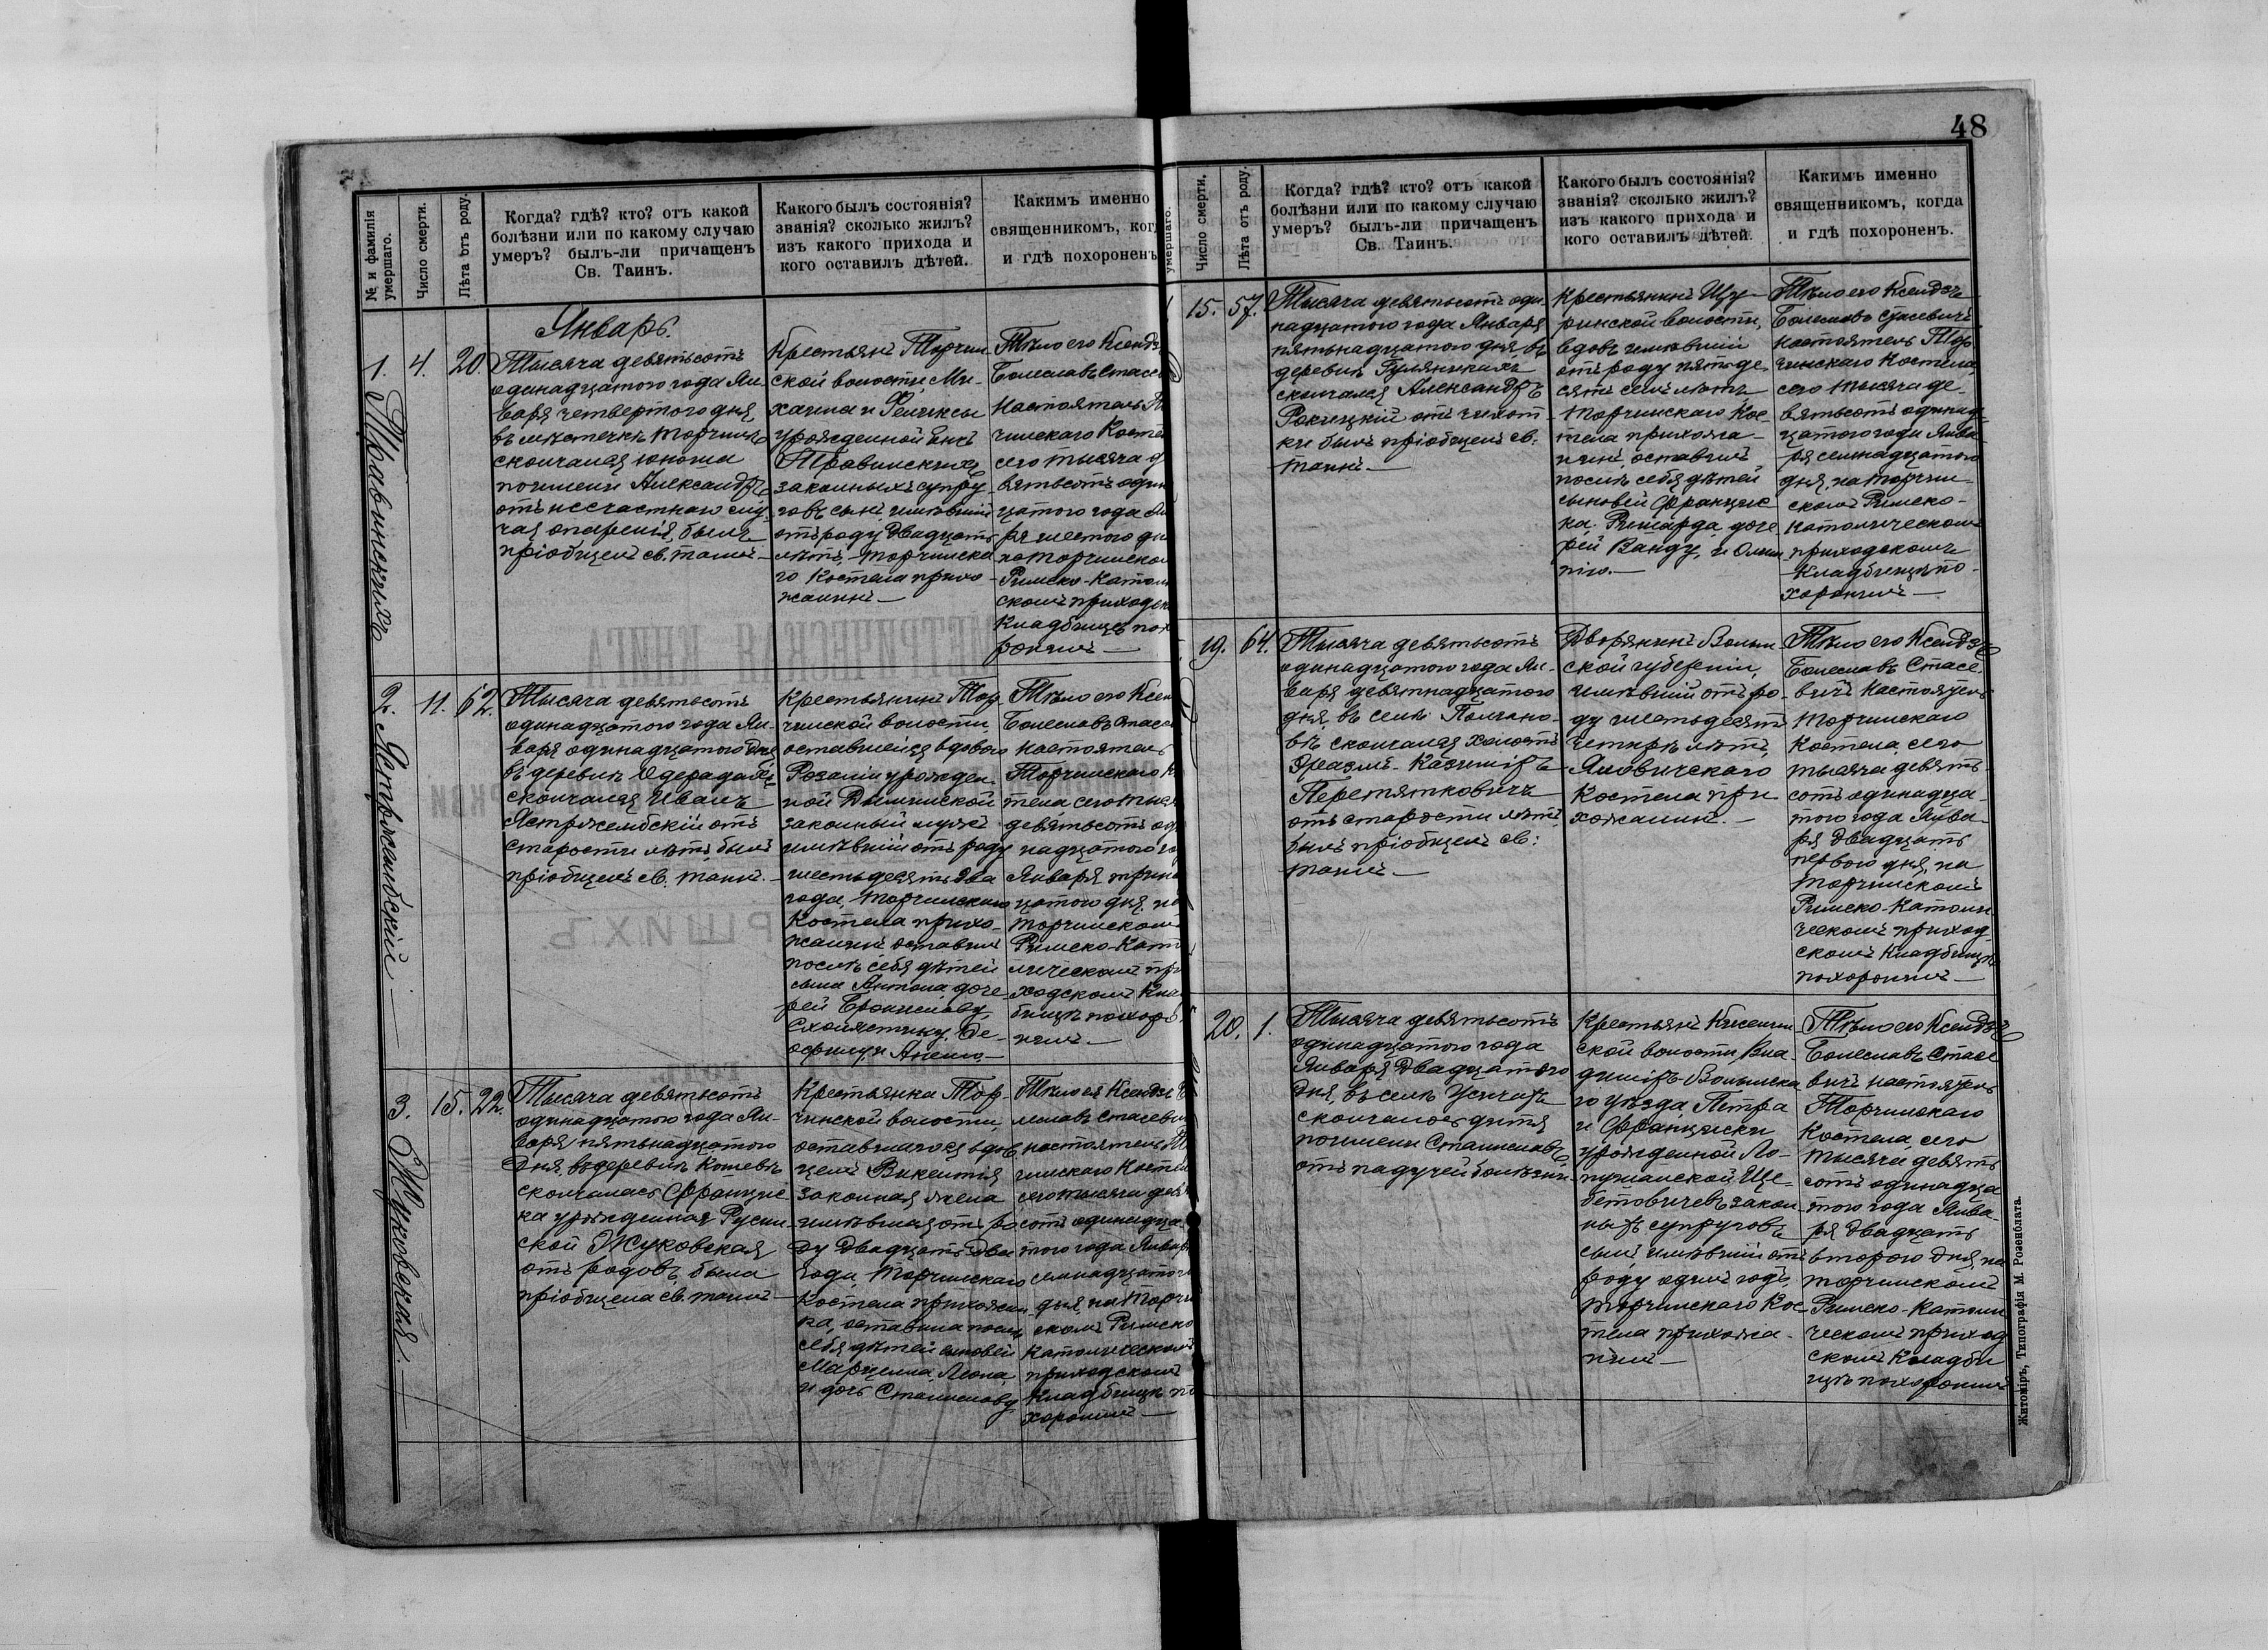 № и фамилія умершаго.
Число смерти.
Лѣта отъ роду.
Когда? гдѣ? кто? отъ какой
болѣзни или по какому случаю
умеръ? былъ-ли причащенъ
Св. Таинъ.
Какого былъ состоянія?
званія? сколько жилъ?
изъ какого прихода и
кого оставилъ дѣтей.
Какимъ именно
священникомъ, ког
и гдѣ похороненъ
Январь.
1.
Травинскихъ
4.
20
Тысяча девятьсотъ
одинадцатого года Ян-
варя четвертого дня,
въ мѣстечкѣ Торчинѣ
скончался юноша
по имени Александръ
отъ несчастнаго слу-
чая опаренія, былъ
пріобщенъ св. таинъ. —
Крестьянъ Торчин-
ской волости, Ми-
хаила и Феликсы
урожденной Енкъ
Травинскихъ
законныхъ супру-
говъ сынъ, имѣвшій
отъ роду двадцать
лѣтъ, Торчинска-
го Костела прихо-
жанинъ —
Тѣло его Ксендзъ
Болеславъ Стасе
настоятель
чинскаго Косте
сего тысяча д
вятьсотъ один
цатого года Ян
ря шестого дн
на Торчинско
Римско-Катол
скомъ приходск
Кладбищѣ пох
ронилъ —
2.
Ястржембскій —
11.
62.
Тысяча девятьсотъ
одинадцатого года Ян-
варя одинадцатого дня
въ деревнѣ Одерадахъ
скончался Иванъ
Ястржембскій отъ
старости лѣтъ, былъ
пріобщенъ св. таинъ. —
Крестьянинъ Тор-
чинской волости,
оставшейся вдовою
Розаліи урожден-
ной
законный мужъ
имѣвшій отъ роду
шестьдесятъ два
года, Торчинскаго
Костела прихо-
жанинъ оставилъ
послѣ себя дѣтей
сына Антона, доче-
рей Брониславу,
Схоластику, Де-
офилу и Анелю —
Тѣло его Ксен
Болеславъ Стасе
настоятель
Торчинскаго К
тела, сего тыся
девятьсотъ од
надцатого го
Января трина
цатого дня, на
Торчинскомъ
Римско-Като
лическомъ при
ходскомъ Кла
бищѣ похоро
нилъ —
3.
Жуковская. —
15.
22.
Тысяча девятьсотъ
одинадцатого года Ян-
варя пятьнадцатого
дня, въ деревнѣ Кошевѣ
скончалась Францис-
ка урожденная Русин-
ской Жуковская
отъ родовъ, была
пріобщена св. таинъ —
Крестьянка Тор-
чинской волости,
оставшагося вдов-
цемъ Викентія
законная жена
имѣвшая отъ ро-
ду двадцать два
года, Торчинскаго
Костела прихожан-
ка, оставила послѣ
себя дѣтей сыновей
Марцелла, Леона,
и дочь Станиславу
Тѣло ея Ксендзъ Б
леславъ Стасеви
настоятель То
чинскаго Косте
сего тысяча девя
сотъ одинадца
того года Январ
семнадцатого
дня, на Торчи
скомъ Римско
Католическомъ
приходскомъ
Кладбищѣ по
хоронилъ —
48
умершаго.
Число смерти.
Лѣта отъ роду.
Когда? гдѣ? кто? отъ какой
болѣзни или по какому случаю
умеръ? былъ-ли причащенъ
Св. Таинъ.
Какого былъ состоянія?
званія? сколько жилъ?
изъ какого прихода и
кого оставилъ дѣтей.
Какимъ именно
священникомъ, когда
и гдѣ похороненъ.
15.
57.
Тысяча девятьсотъ оди-
надцатого года Января
пятьнадцатого дня, въ
деревнѣ Гуляникахъ
скончался Александръ
Рокицкій отъ чихот-
ки былъ пріобщенъ св.
таинъ —
Крестьянинъ Щу-
ринской волости,
вдовъ имѣвшій
отъ роду пятьде-
сятъ семь лѣтъ
Торчинскаго Кос-
тела прихожа-
нинъ, оставилъ
послѣ себя дѣтей
сыновей Францис-
ка, Ришарда, доче-
рей Ванду, и Олим-
пію. —
Тѣло его Ксендзъ
Болеславъ Стасевичъ
настоятель Тор-
чинскаго Костела,
сего тысяча де-
вятьсотъ одинад-
цатого года Янва-
ря семнадцатого
дня, на Торчин-
скомъ Римско-
Католическомъ
приходскомъ
Кладбищѣ по-
хоронилъ —
19.
64.
Тысяча девятьсотъ
одинадцатого года Ян-
варя девятнадцатого
дня, въ селѣ Полчано-
вѣ скончался холостъ
Эразмъ-Казиміръ
Перетятковичъ
отъ старости лѣтъ,
былъ пріобщенъ св.
таинъ —
Дворянинъ Волын-
ской губерніи,
имѣвшій отъ ро-
ду шестьдесятъ
четыре лѣтъ,
Яловичскаго
Костела при-
хожанинъ. —
Тѣло его Ксендзъ
Болеславъ Стасе-
вичъ настоятель
Торчинскаго
Костела, сего
тысяча девять-
сотъ одинадца-
того года Янва-
ря двадцать
первого дня, на
Торчинскомъ
Римско-Католи-
ческомъ приход-
скомъ Кладбищѣ
похоронилъ —
20.
1.
Тысяча девятьсотъ
одинадцатого года
Января двадцатого
дня, въ селѣ Усичахъ
скончалось дитя
по имени Станиславъ
отъ падучей болѣзни
Крестьянъ Киселин-
ской волости, Вла-
диміръ-Волынска-
го уѣзда, Петра
и Франциски
урожденной Ло-
пушанской Ще-
бетовичевъ закон-
ныхъ супруговъ
сынъ, имѣвшій отъ
роду одинъ годъ,
Торчинскаго Кос-
тела прихожа-
нинъ —
Тѣло его Ксендзъ
Болеславъ Стасе-
вичъ настоятель
Торчинскаго
Костела, сего
тысяча девять-
сотъ одинадца-
того года Янва-
ря двадцать
второго дня, на
Торчинскомъ
Римско-Католи-
ческомъ приход-
скомъ Кладби-
щѣ похоронилъ
Житоміръ, Типографія М. Розенблата.